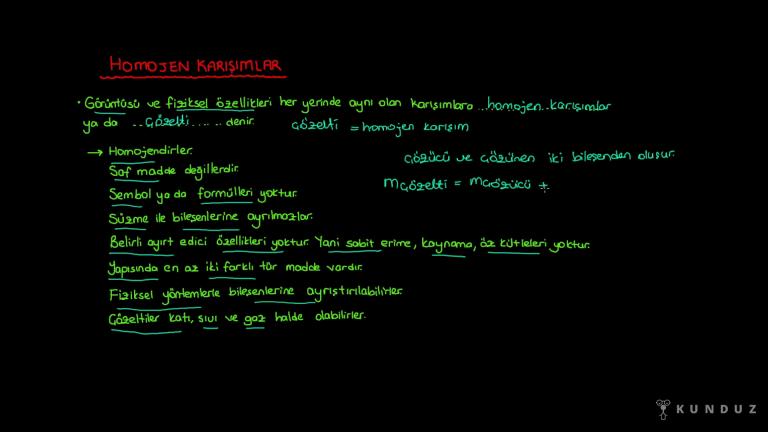 HOMOJEN KARIŞIMLAR
• Görüntüsü ve fiziksel özellikleri her yerinde aynı olan karışımlara ...homojen..karışımlar
ya da ...Çözelti...... denir.
Çözelti = homojen karışım
→ Homojendirler.
Çözücü ve çözünen iki bileşenden oluşur.
Saf madde değillerdir.
mçözelti = mçözücü +
Sembol ya da formülleri yoktur.
Süzme ile bileşenlerine ayrılmazlar.
Belirli ayırt edici özellikleri yoktur. Yani sabit erime, kaynama, öz kütleleri yoktur.
Yapısında en az iki farklı tür madde vardır.
Fiziksel yöntemlerle bileşenlerine ayrıştırılabilirler.
Çözeltiler katı, sıvı ve gaz halde olabilirler.
KUNDUZ